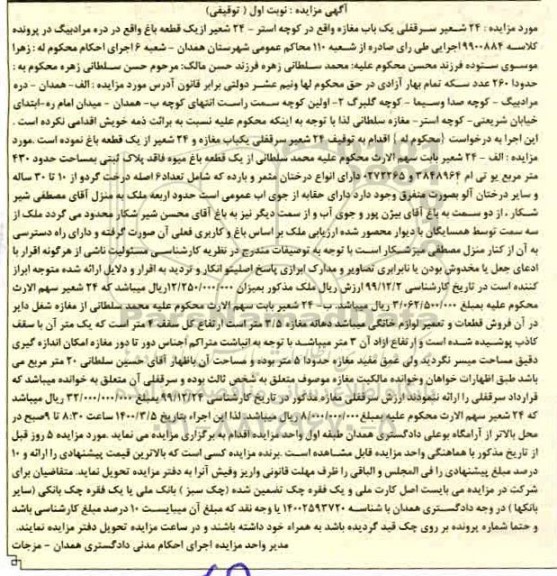 آگهی مزایده : نوبت اول ( توقیفی)
مورد مزایده : ۲۴ شعیر سرقفلی یک باب مغازه واقع در کوچه استر - ۲۴ شعیر ازیک قطعه باغ واقع در دره مرادبیگ در پرونده
کلاسه ۹۹۰۰۸۸۴ اجرایی طی رای صادره از شعبه ۱۱۰ محاکم عمومی شهرستان همدان - شعبه ۶ اجرای احکام محکوم له : زهرا
موسوی ستوده فرزند محسن محکوم علیه: محمد سلطانی زهره فرزند حسن مالک: مرحوم حسن سلطانی زهره محکوم به :
حدودا ۲۶۰ عدد سکه تمام بهار آزادی در حق محکوم لها ونیم عشر دولتی برابر قانون آدرس مورد مزایده : الف - همدان - دره
مرادبیگ - کوچه صدا وسیما - کوچه گلبرگ ۲- اولین کوچه سمت راست انتهای کوچه ب- همدان - میدان امام ره-ابتدای
خیابان شریعتی- کوچه استر- مغازه سلطانی لذا با توجه به اینکه محکوم علیه نسبت به برائت ذمه خویش اقدامی نکرده است .
این اجرا به درخواست {محکوم له } اقدام به توقیف ۲۴ شعیر سرقفلی یکباب مغازه و ۲۴ شعیر از یک قطعه باغ نموده است .مورد
مزایده : الف - ۲۴ شعیر بابت سهم الارث محکوم علیه محمد سلطانی از یک قطعه باغ میوه فاقد پلاک ثبتی بمساحت حدود ۴۳۰
متر مربع یو تی ام ۳۸۴۸۹۶۴ و ۰۲۷۲۲۶۵ دارای انواع درختان مثمر و بارده که شامل تعداد۶ اصله درخت گردو از ۱۰ تا ۳۰ ساله
و سایر درختان آلو بصورت متفرق وجود دارد دارای حقابه از جوی اب عمومی است حدود اربعه ملک به منزل آقای مصطفی شیر
شکار ،از دو سمت به باغ آقای بیژن پور و جوی آب و از سمت دیگر نیز به باغ آقای محسن شیر شکار محدود می گردد ملک از
سه سمت توسط همسایگان با دیوار محصور شده ارزیابی ملک بر اساس باغ و کاربری فعلی آن صورت گرفته و دارای راه دسترسی
به آن از کنار منزل مصطفی میرشکار است با توجه به توصیفات مندرج در نظریه کارشناسی مسئولیت ناشی از هرگونه اقرار با
ادعای جعل یا مخدوش بودن یا نابرابری تصاویر و مدارک ابرازی پاسخ اصلیتو انکار و تردید به اقرار و دلایل ارائه شده متوجه ابراز
کننده است در تاریخ کارشناسی ۹۹/۱۲/۲ ارزش ریال ملک مذکور بمیزان ۱۲/۲۵۰/۰۰۰/۰۰۰ریال میباشد که ۲۴ شعیر سهم الارث
محکوم علیه بمبلغ ۳/۰۶۲/۵۰۰/۰۰۰ ریال میباشد. ب- ۲۴ شعیر بابت سهم الارث محکوم علیه محمد سلطانی از مغازه شغل دایر
در آن فروش قطعات و تعمیر لوازم خانگی میباشد دهانه مغازه ۲/۵ متر است ارتفاع کل سقف ۴ متر است که یک متر آن با سقف
کاذب پوشیده شده است و ارتفاع ازاد آن ۳ متر میباشد با توجه به انباشت متراکم اجناس دور تا دور مغازه امکان اندازه گیری
دقیق مساحت میسر نگردید ولی عمق مفید مغازه حدودا ۵ متر بوده و مساحت آن باظهار آقای حسین سلطانی ۲۰ متر مربع می
باشد طبق اظهارات خواهان وخوانده مالکیت مغازه موصوف متعلق به شخص ثالث بوده و سرقفلی آن متعلق به خوانده میباشد که
قرارداد سرقفلی را ارائه ننمودند ارزش سرقفلی مغازه مذکور در تاریخ کارشناسی ۹۹/۱۲/۲۴ بمبلغ ۳۲/۰۰۰/۰۰۰/۰۰۰ ریال میباشد
که ۲۴ شعیر سهم الارث محکوم علیه بمبلغ۸/۰۰۰/۰۰۰/۰۰۰ ریال میباشد لذا این اجراء بتاریخ ۱۴۰۰/۳/۵ ساعت ۸:۳۰ تا ۹صبح در
محل بالاتر از آرامگاه بوعلی دادگستری همدان طبقه اول واحد مزایده اقدام به برگزاری مزایده می نماید .مورد مزایده ۵ روز قبل
از تاریخ مذکور با هماهنگی واحد مزایده قابل مشاهده است .برنده مزایده کسی است که بالاترین قیمت پیشنهادی را ارائه و ۱۰
درصد مبلغ پیشنهادی را فی المجلس و الباقی را ظرف مهلت قانونی واریز وفیش آنرا به دفتر مزایده تحویل نماید. متقاضیان برای
شرکت در مزایده می بایست اصل کارت ملی و یک فقره چک تضمین شده (چک سبز ) بانک ملی یا یک فقره چک بانکی (سایر
بانکها ) در وجه دادگستری همدان با شناسه ۱۴۰۰۲۵۹۳۷۲۰ یا وجه نقد که مبلغ آن میبایست ۱۰ درصد مبلغ کارشناسی باشد
و حتما شماره پرونده بر روی چک قید گردیده باشد به همراه خود داشته باشند و در ساعت مزایده تحویل دفتر مزایده نمایند.
مدیر واحد مزایده اجرای احکام مدنی دادگستری همدان - مزجات